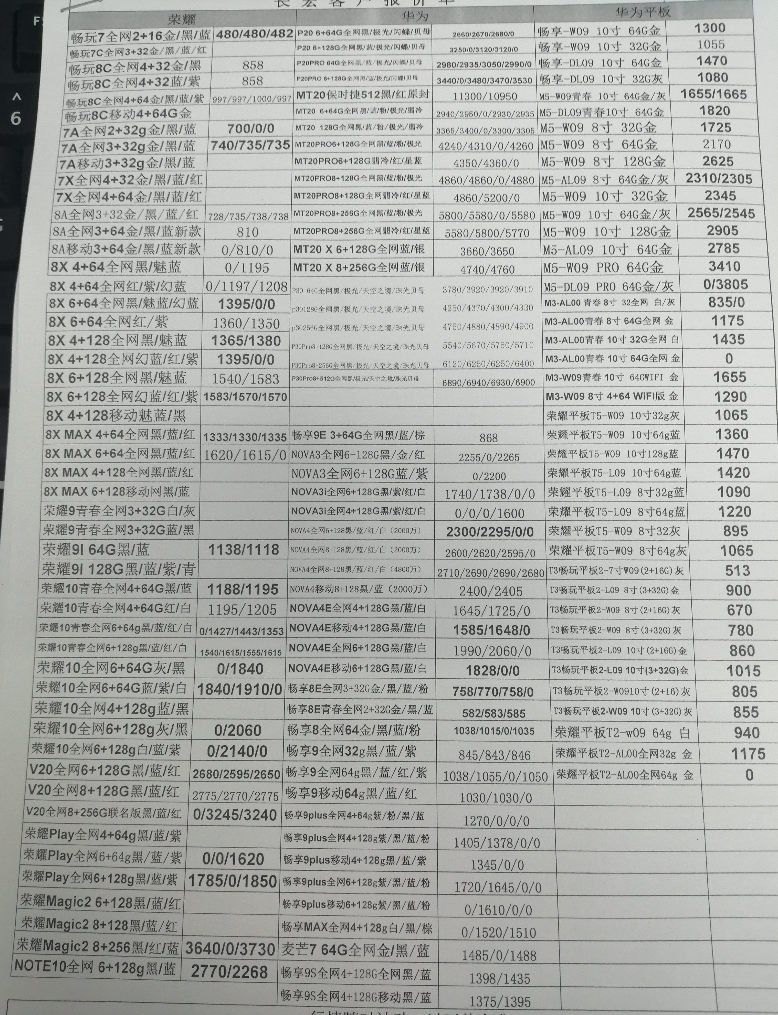 长宏客户报价单
荣耀 华为 华为平板
畅玩7全网2+16金/黑/蓝 480/480/482 P20 6+64G全网黑/极光/闪蝶/贝母 2660/2670/2680/0 畅享-W09 10寸 64G金 1300
畅玩7C全网3+32金/黑/蓝/红 P20 6+128G全网黑/蓝/极光/闪蝶/贝母 3250/0/3120/3120/0 畅享-W09 10寸 32G金 1055
畅玩8C全网4+32金/黑 858 P20PRO 64G全网黑/蓝/极光/闪蝶/贝母 2980/2935/3050/2990/0 畅享-DL09 10寸 64G金 1470
畅玩8C全网4+32蓝/紫 858 3440/0/3480/3470/3530 畅享-DL09 10寸 32G灰 1080
畅玩8C全网4+64金/黑/蓝/紫 997/997/1000/997 MT20保时捷512黑/红原封 11300/10950 M5-W09青春 10寸 64G金/灰 1655/1665
畅玩8C移动4+64G金 MT20 6+64G全网黑/蓝/粉/极光/翡冷 2940/2950/0/2930/2935 M5-DL09青春10寸 64G金 1820
7A全网2+32g金/黑/蓝 700/0/0 MT20 128G全网黑/蓝/粉/极光/翡冷 3365/3400/0/3300/3305 M5-W09 8寸 32G金 1725
7A全网3+32g金/黑/蓝 740/735/735 MT20PRO6+128G全网黑/蓝/粉/极光 4240/4310/0/4260 M5-W09 8寸 64G金 2170
7A移动3+32g金/黑/蓝 MT20PRO6+128G翡冷/红/星蓝 4350/4360/0 M5-W09 8寸 128G金 2625
7X全网4+32金/黑/蓝/红 MT20PRO8+128G全网黑/蓝/粉/极光 4860/4860/0/4880 M5-AL09 8寸 64G金/灰 2310/2305
7X全网4+64金/黑/蓝/红 MT20PRO8+128G全网翡冷/红/星蓝 4860/5200/0 M5-W09 10寸 32G金 2345
8A全网3+32金/黑/蓝/红 728/735/738/738 MT20PRO8+256G全网黑/蓝/粉/极光 5800/5580/0/5580 M5-W09 10寸 64G金/灰 2565/2545
8A全网3+64金/黑/蓝新款 810 MT20PRO8+256G全网翡冷/红/星蓝 5580/5800/5770 M5-W09 10寸 128G金 2905
8A移动3+64金/黑/蓝新款 0/810/0 MT20 X 6+128G全网蓝/银 3660/3650 M5-AL09 10寸 64G金 2785
8X 4+64全网黑/魅蓝 0/1195 MT20 X 8+256G全网蓝/银 4740/4760 M5-W09 PRO 64G金 3410
8X 4+64全网红/紫/幻蓝 0/1197/1208 3780/3920/3920/3915 M5-DL09 PRO 64G金/灰 0/3805
8X 6+64全网黑/魅蓝/幻蓝 1395/0/0 4250/4370/4300/4330 M3-AL00青春 8寸 32全网 白/灰 835/0
8X 6+64全网红/紫 1360/1350 4750/4880/4890/4900 M3-AL00青春 8寸 64G全网 金 1175
8X 4+128全网黑/魅蓝 1365/1380 5540/5670/5750/5710 M3-AL00青春 10寸 32G全网 白 1435
8X 4+128全网幻蓝/红/紫 1395/0/0 6120/6250/6250/6400 M3-AL00青春 10寸 64G全网 金 0
8X 6+128全网黑/魅蓝 1540/1583 6890/6940/6930/6900 M3-W09青春 10寸 64GWIFI 金 1655
8X 6+128全网幻蓝/红/紫 1583/1570/1570 M3-W09 8寸 4+64 WIFI版 金 1290
8X 4+128移动魅蓝/黑 荣耀平板T5-W09 10寸32g灰 1065
8X MAX 4+64全网黑/蓝/红 1333/1330/1335 畅享9E 3+64G全网黑/蓝/棕 868 荣耀平板T5-W09 10寸64g蓝 1360
8X MAX 6+64全网黑/蓝/红 1620/1615/0 NOVA3全网6+128G黑/金/红 2255/0/2265 荣耀平板T5-W09 10寸128g蓝 1470
8X MAX 4+128全网黑/蓝/红 NOVA3全网6+128G蓝/紫 0/2200 荣耀平板T5-L09 10寸64g蓝 1420
8X MAX 6+128移动网黑/蓝 NOVA3i全网6+128G黑/紫/红/白 1740/1738/0/0 荣耀平板T5-L09 8寸32g蓝 1090
荣耀9青春全网3+32G白/灰 NOVA3i全网4+128G黑/紫/红/白 0/0/0/1600 荣耀平板T5-L09 8寸64g蓝 1220
荣耀9青春全网3+32G蓝/黑 NOVA4全网6+128黑/蓝/红/白 (2000万) 2300/2295/0/0 荣耀平板T5-W09 8寸32灰 895
荣耀9I 64G黑/蓝 1138/1118 NOVA4全网8+128黑/蓝/红/白 (2000万) 2600/2620/2595/0 荣耀平板T5-W09 8寸64g灰 1065
荣耀9I 128G黑/蓝/紫/青 NOVA4全网8+128黑/蓝/红/白 (4800万) 2710/2690/2690/2680 T3畅玩平板2-7寸W09(2+16G)灰 513
荣耀10青春全网4+64G黑/蓝 1188/1195 NOVA4移动8+128黑/蓝 (2000万) 2400/2405 T3畅玩平板2-L09 8寸(3+32G)金 900
荣耀10青春全网4+64G红/白 1195/1205 NOVA4E全网4+128G黑/蓝/白 1645/1725/0 T3畅玩平板2-W09 8寸(2+16G)灰 670
荣耀10青春全网6+64g黑/蓝/红/白 0/1427/1443/1353 NOVA4E移动4+128G黑/蓝/白 1585/1648/0 T3畅玩平板2-W09 8寸(3+32G)灰 780
荣耀10青春全网6+128g黑/蓝/红/白 1540/1615/1555/1615 NOVA4E全网6+128G黑/蓝/白 1990/2060/0 T3畅玩平板2-L09 10寸(2+16G)金 860
荣耀10全网6+64G灰/黑 0/1840 NOVA4E移动6+128G黑/蓝/白 1828/0/0 T3畅玩平板2-L09 10寸(3+32G)金 1015
荣耀10全网6+64G蓝/紫/白 1840/1910/0 畅享8E全网3+32G金/黑/蓝/粉 758/770/758/0 T3畅玩平板2-W0910寸(2+16)灰 805
荣耀10全网4+128g黑/蓝 畅享8E青春全网2+32G金/黑/蓝 582/583/585 T3畅玩平板2-W09 10寸(3+32G)灰 855
荣耀10全网6+128g灰/黑 0/2060 畅享8全网64金/黑/蓝/粉 1038/1015/0/1035 荣耀平板T2-w09 64g 白 940
荣耀10全网6+128g白/蓝/紫 0/2140/0 畅享9全网32g黑/蓝/紫 845/843/846 荣耀平板T2-AL00全网32g 金 1175
V20全网6+128G黑/蓝/红 2680/2595/2650 畅享9全网64g黑/蓝/红/紫 1038/1055/0/1050 荣耀平板T2-AL00全网64g 金 0
V20全网8+128G黑/蓝/红 2775/2770/2775 畅享9移动64g黑/蓝/红 1030/1030/0
V20全网8+256G联名版黑/蓝/红 0/3245/3240 畅享9plus全网4+64g紫/粉/黑/蓝 1270/0/0/0
荣耀Play全网4+64g黑/蓝/紫 畅享9plus全网4+128g紫/黑/蓝/粉 1405/1378/0/0
荣耀Play全网6+64g黑/蓝/紫 0/0/1620 畅享9plus移动4+128g黑/蓝/紫 1345/0/0
荣耀Play全网6+128g黑/蓝/紫 1785/0/1850 畅享9plus全网6+128g紫/黑/蓝/粉 1720/1645/0/0
荣耀Magic2 6+128黑/蓝/红 畅享9plus移动6+128g紫/黑/蓝 0/1610/0/0
荣耀Magic2 8+128黑/蓝/红 畅享MAX全网4+128g白/黑/棕 0/1520/1510
荣耀Magic2 8+256黑/红/蓝 3640/0/3730 麦芒7 64G全网金/黑/蓝 1485/0/1488
NOTE10全网 6+128g黑/蓝 2770/2268 畅享9S全网4+128G全网黑/蓝 1398/1435
畅享9S全网4+128G移动黑/蓝 1375/1395